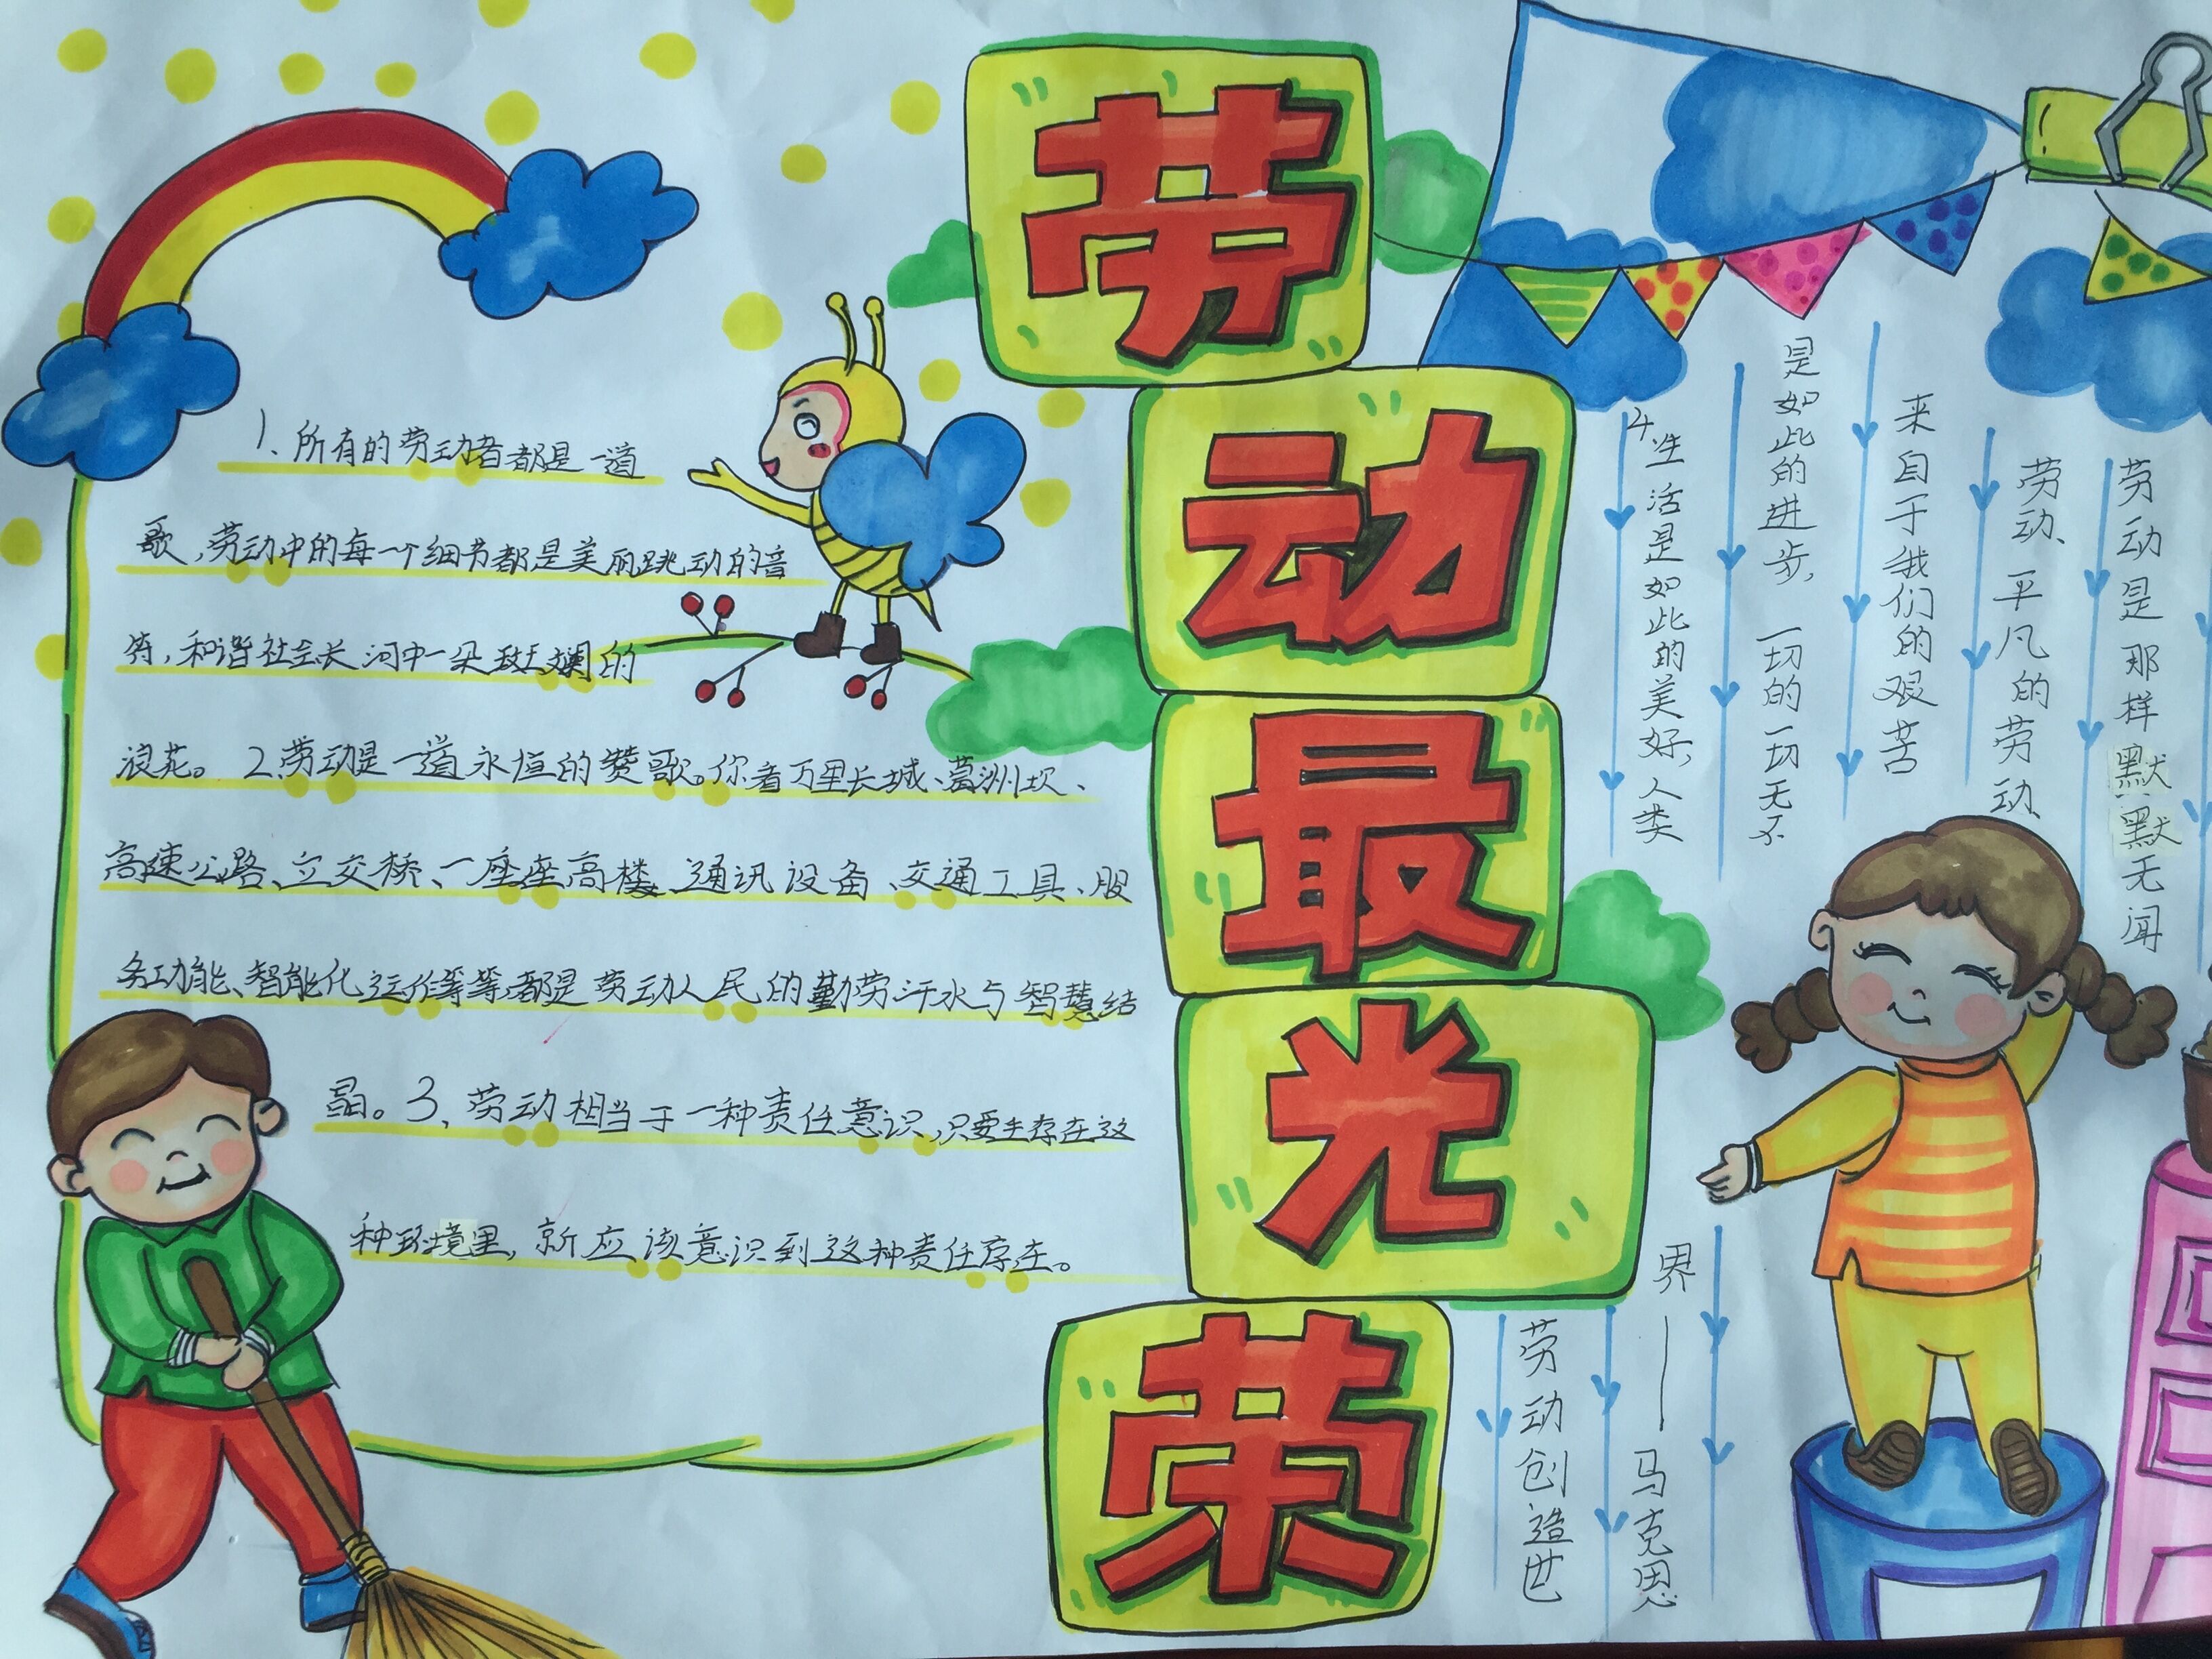 劳动最光荣
1、所有的劳动者都是一道
歌,劳动中的每一个细节都是美丽跳动的音
符,和谐社会长河中一朵斑斓的
浪花。2、劳动是一道永恒的赞歌。你看万里长城、葛洲坝、
高速公路、立交桥、一座座高楼、通讯设备、交通工具、服
务功能、智能化运作等等都是劳动人民的勤劳汗水与智慧结
晶。3、劳动相当于一种责任意识,只要生存在这
种环境里,就应该意识到这种责任存在。
4.生活是如此的美好,人类
是如此的进步,一切的一切无不
来自于我们的艰苦
劳动、平凡的劳动、
劳动是那样默默无闻
劳动创造世
界——马克思